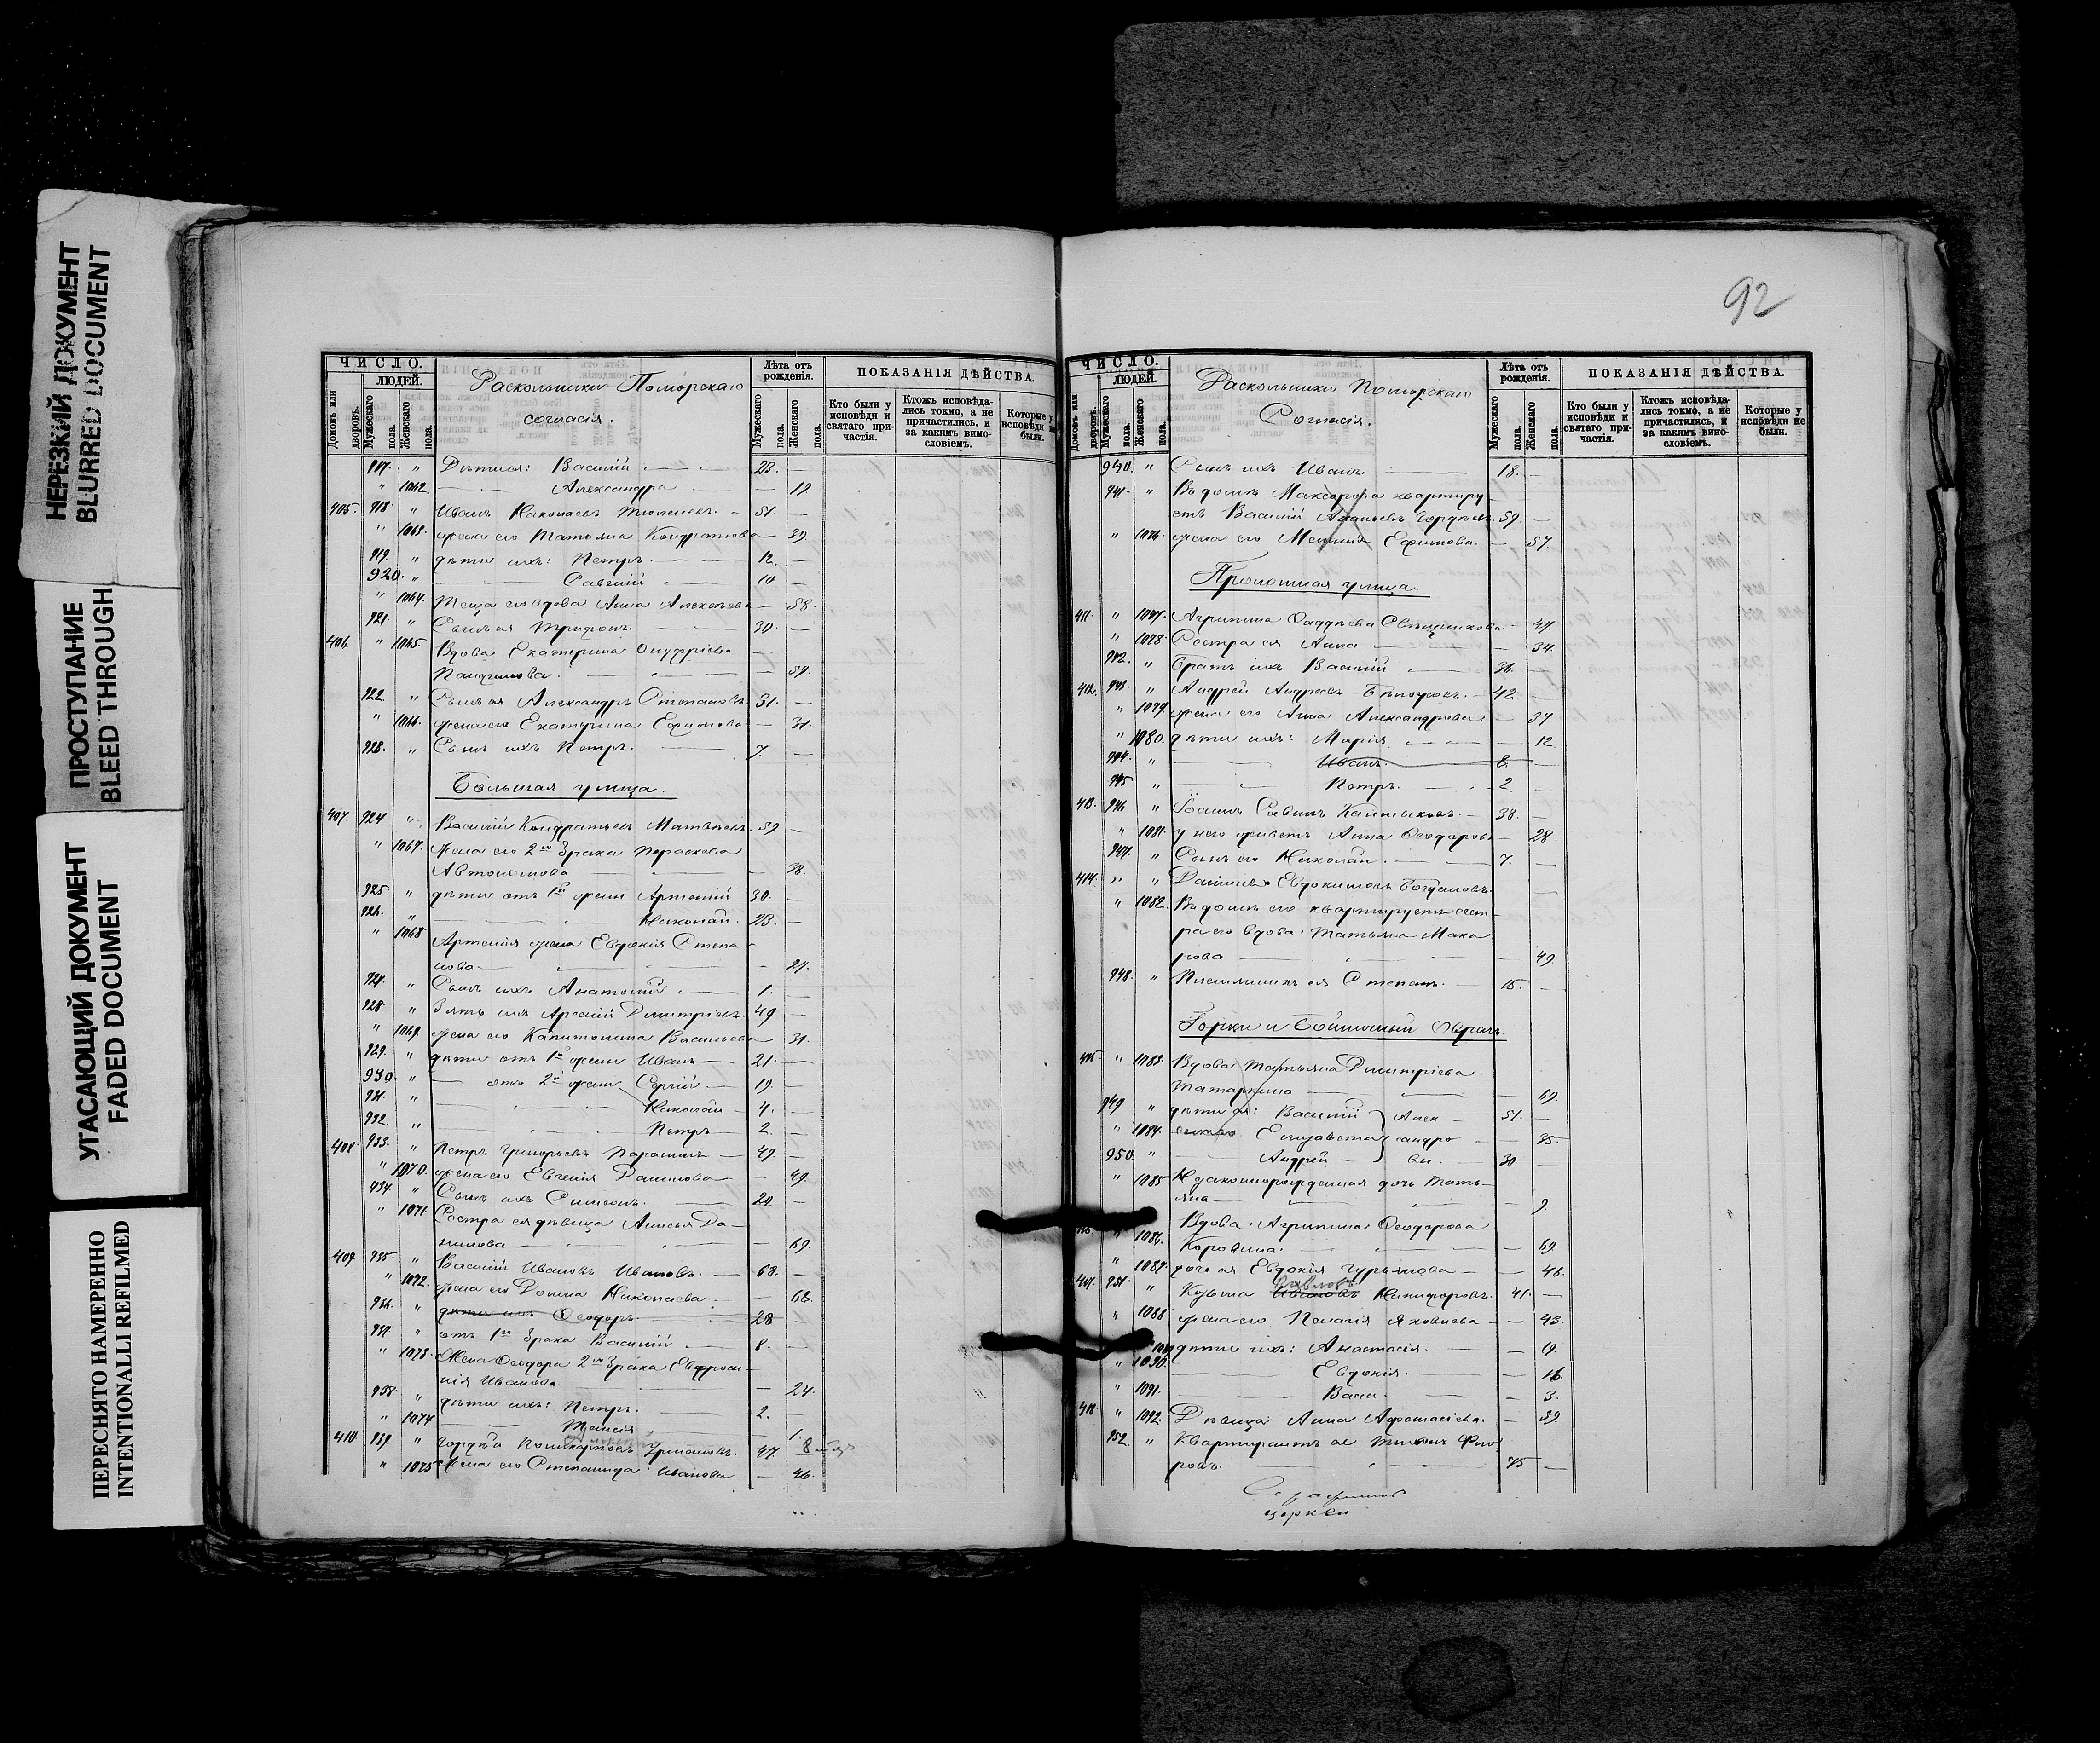 НЕРЕЗКИЙ ДОКУМЕНТ
BLURRED DOCUMENT
ПРОСТУПАНИЕ
BLEED THROUGH
УГАСАЮЩИЙ ДОКУМЕНТ
FADED DOCUMENT
ПЕРЕСНЯТО НАМЕРЕННО
INTENTIONALLI REFILMED
ЧИСЛО.
ЛЮДЕЙ.
Домовъ или дворовъ.
Мужескаго пола.
Женскаго пола.
Раскольники Поморскаго
согласія.
Лѣта отъ рожденія.
Мужескаго пола.
Женскаго пола.
ПОКАЗАНІЯ ДѢЙСТВА.
Кто были у исповѣди и святаго причастія.
Ктожъ исповѣдались токмо, а не причастились, и за какимъ винословіемъ.
Которые у исповѣди не были.
917. " Василій 23. —
" 1062. Александра — 19
405. 918. " Иванъ Николаевъ 51. —
" 1063. жена его Татьяна Кондратова — 39.
919. " дѣти ихъ: Петръ. 12. —
920. " 10 —
" 1064. Теща его вдова Анна — 58.
921. " Сынъ ея Трифонъ. 30. —
406. " 1065. Вдова Екатерина Онуфріева
— 59.
922. " Сынъ ея Александръ Степановъ 31. —
" 1066. жена его Екатерина — 31.
923. " Сынъ ихъ Петръ. 7. —
Большая улица.
407. 924 " Василій Кондратьевъ Матвѣевъ. 59 —
" 1067. жена его 2го брака Параскева
Автономова — 38.
925. " дѣти отъ 1й жены Артемій 30. —
926. " Николай. 23. —
" 1068 Артемія жена Евдокія Степа-
нова — 27.
927. " Сынъ ихъ Анатолій 1. —
928. " Зять ихъ Арсеній Димитріевъ. 49 —
" 1069. жена его Капитолина Васильева 31.
929. " дѣти отъ 1й жены Иванъ 21. —
930. " — отъ 2й жены Сергій 19. —
931. " Николай 4. —
932. " Петръ 2. —
408. 933. " Петръ Григорьевъ 49. —
" 1070. жена его Евгенія Данилова — 49.
934. " Сынъ ихъ Симеонъ. 20. —
" 1071. Сестра ея дѣвица Да-
нилова — 69.
409. 935. " Василій Ивановъ Ивановъ. 68. —
" 1072. жена его Домна Николаева. — 68.
936. " дѣти ихъ Ѳеодоръ 28 —
937. " отъ 1го брака Василій 8. —
" 1073. Жена Ѳеодора 2го брака Евфроси-
нія Иванова — 24.
938. " дѣти ихъ: Петръ. 2. —
" 1074 Таисія — 1.
410 939. " 47.
" 1075 Жена его Степанида Иванова — 46.
92
ЧИСЛО.
ЛЮДЕЙ.
Домовъ или дворовъ.
Мужескаго пола.
Женскаго пола.
Раскольники Поморскаго
Согласія.
Лѣта отъ рожденія.
Мужескаго пола.
Женскаго пола.
ПОКАЗАНІЯ ДѢЙСТВА.
Кто были у исповѣди и святаго причастія.
Ктожъ исповѣдались токмо, а не причастились, и за какимъ винословіемъ.
Которые у исповѣди не были.
940. " Сынъ ихъ Иванъ. 18. —
941. " Въ домѣ Макарова квартиру-
етъ Василій 59. —
" 1076. жена его Ефимова. — 57.
улица.
411. " 1077. Агрипина — 47.
" 1078. Сестра ея Анна — 34.
942. " Братъ ихъ Василій 36. —
412. 943. " Андрей Андреевъ 42. —
" 1079. жена его Анна Александрова — 37
" 1080. дѣти ихъ: Марія — 12
944. " Иванъ. 8. —
945 " Петръ. 2. —
413. 946. " Іоаннъ Савинъ 38. —
" 1081. у него живетъ Анна Ѳеодорова 28.
947. " Сынъ его Николай. 7. —
414. " " Евдокимовъ Богдановъ. —
" 1082. Въ домѣ его квартируетъ сест-
ра его вдова Татьяна Мака-
рова — 49
948. " ея Степанъ. 15. —
Горки и Оврагъ.
415 " 1083. Вдова Татьяна Димитріева
— 69.
949 " дѣти ея: Василій Алек- 51. —
" 1084. Елизавета сандро- — 35.
950. " Андрей вы. 30. —
" 1085 Незаконнорожденная дочь Тать-
яна — 9.
416. Вдова Агрипина Ѳеодорова
" 1086. — 69
" 1087. дочь ея Евдокія Гурьянова — 46.
951. " Козьма Ивановъ Павловъ Никифоровъ. 41. —
" 1088 жена его Пелагія Яковлева — 43.
дѣти ихъ: Анастасія. — 19.
" 1090. Евдокія. — 16
" 1091. Васса — 3.
418. " 1092. Дѣвица Анна Афанасіева. — 59.
952. " Квартирантъ ея
ровъ. 75 —
церкви